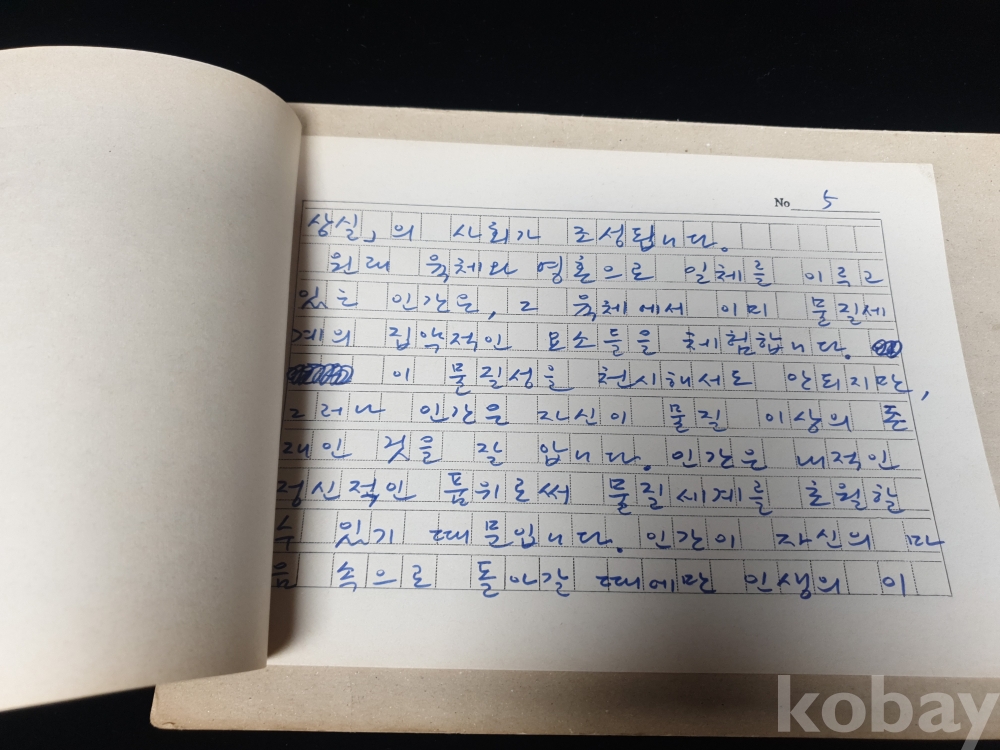 No 5
상실」의 사회가 조성됩니다.
원래 육체와 영혼으로 일체를 이루고
있는 인간은, 그 육체에서 이미 물질세
계의 집약적인 요소들을 체험합니다.
이 물질성을 천시해서도 안되지만,
그러나 인간은 자신이 물질 이상의 존
재인 것을 잘 압니다. 인간은 내적인
정신적인 품위로써 물질세계를 초월할
수 있기 때문입니다. 인간이 자신의 마
음 속으로 돌아갈 때에만 인생의 이
kobay